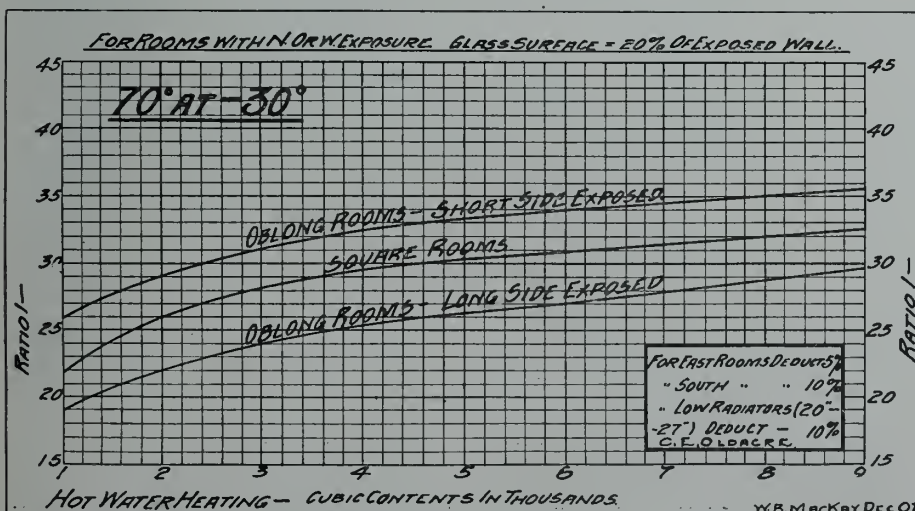 FOR ROOMS WITH N. OR W. EXPOSURE GLASS SURFACE = 20% OF EXPOSED WALL.
70° AT -30°
45 45
40 40
35 35
30 30
25 25
20 20
15 15
OBLONG ROOMS - SHORT SIDE EXPOSED.
SQUARE ROOMS.
OBLONG ROOMS - LONG SIDE EXPOSED
RATIO 1- RATIO 1-
FOR EAST ROOMS DEDUCT 5%
" SOUTH " " 10%
" LOW RADIATORS (20"-
-27") DEDUCT - 10%
C.E. OLDACRE.
1 2 3 4 5 6 7 8 9
HOT WATER HEATING - CUBIC CONTENTS IN THOUSANDS.
W.B. MACKAY DEC 07